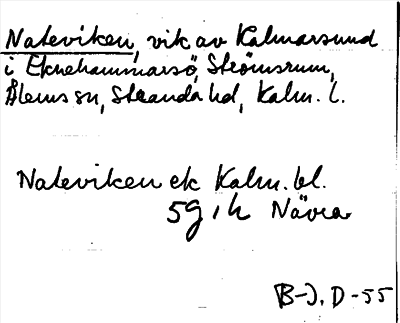 Nateviken, vik av Kalmarsund
i Eknehammarsö, Strömsrum,
Ålems sn, Stranda hd, Kalm. l.
Nateviken ek Kalm. bl.
5g, h Nävra
B-J. D-55